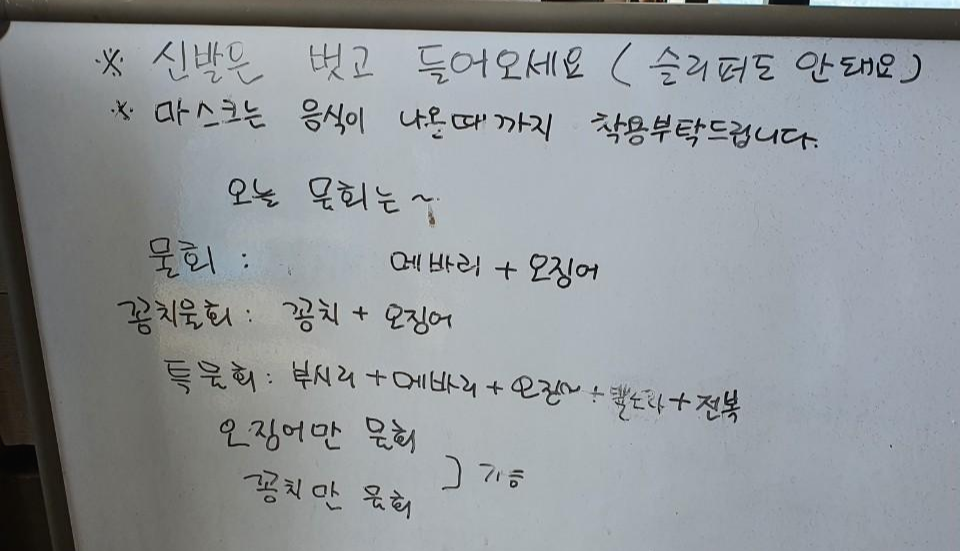 ※ 신발은 벗고 들어오세요 (슬리퍼도 안돼요)
※ 마스크는 음식이 나올때까지 착용부탁드립니다.
오늘 물회는~
물회 : 메바리 + 오징어
꽁치물회 : 꽁치 + 오징어
특물회 : 부시리 + 메바리 + + + 전복
오징어만 물회
꽁치만 물회 ] 가능